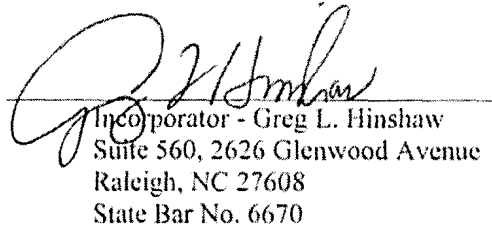 G L Hinshaw
Incorporator - Greg L. Hinshaw
Suite 560, 2626 Glenwood Avenue
Raleigh, NC 27608
State Bar No. 6670